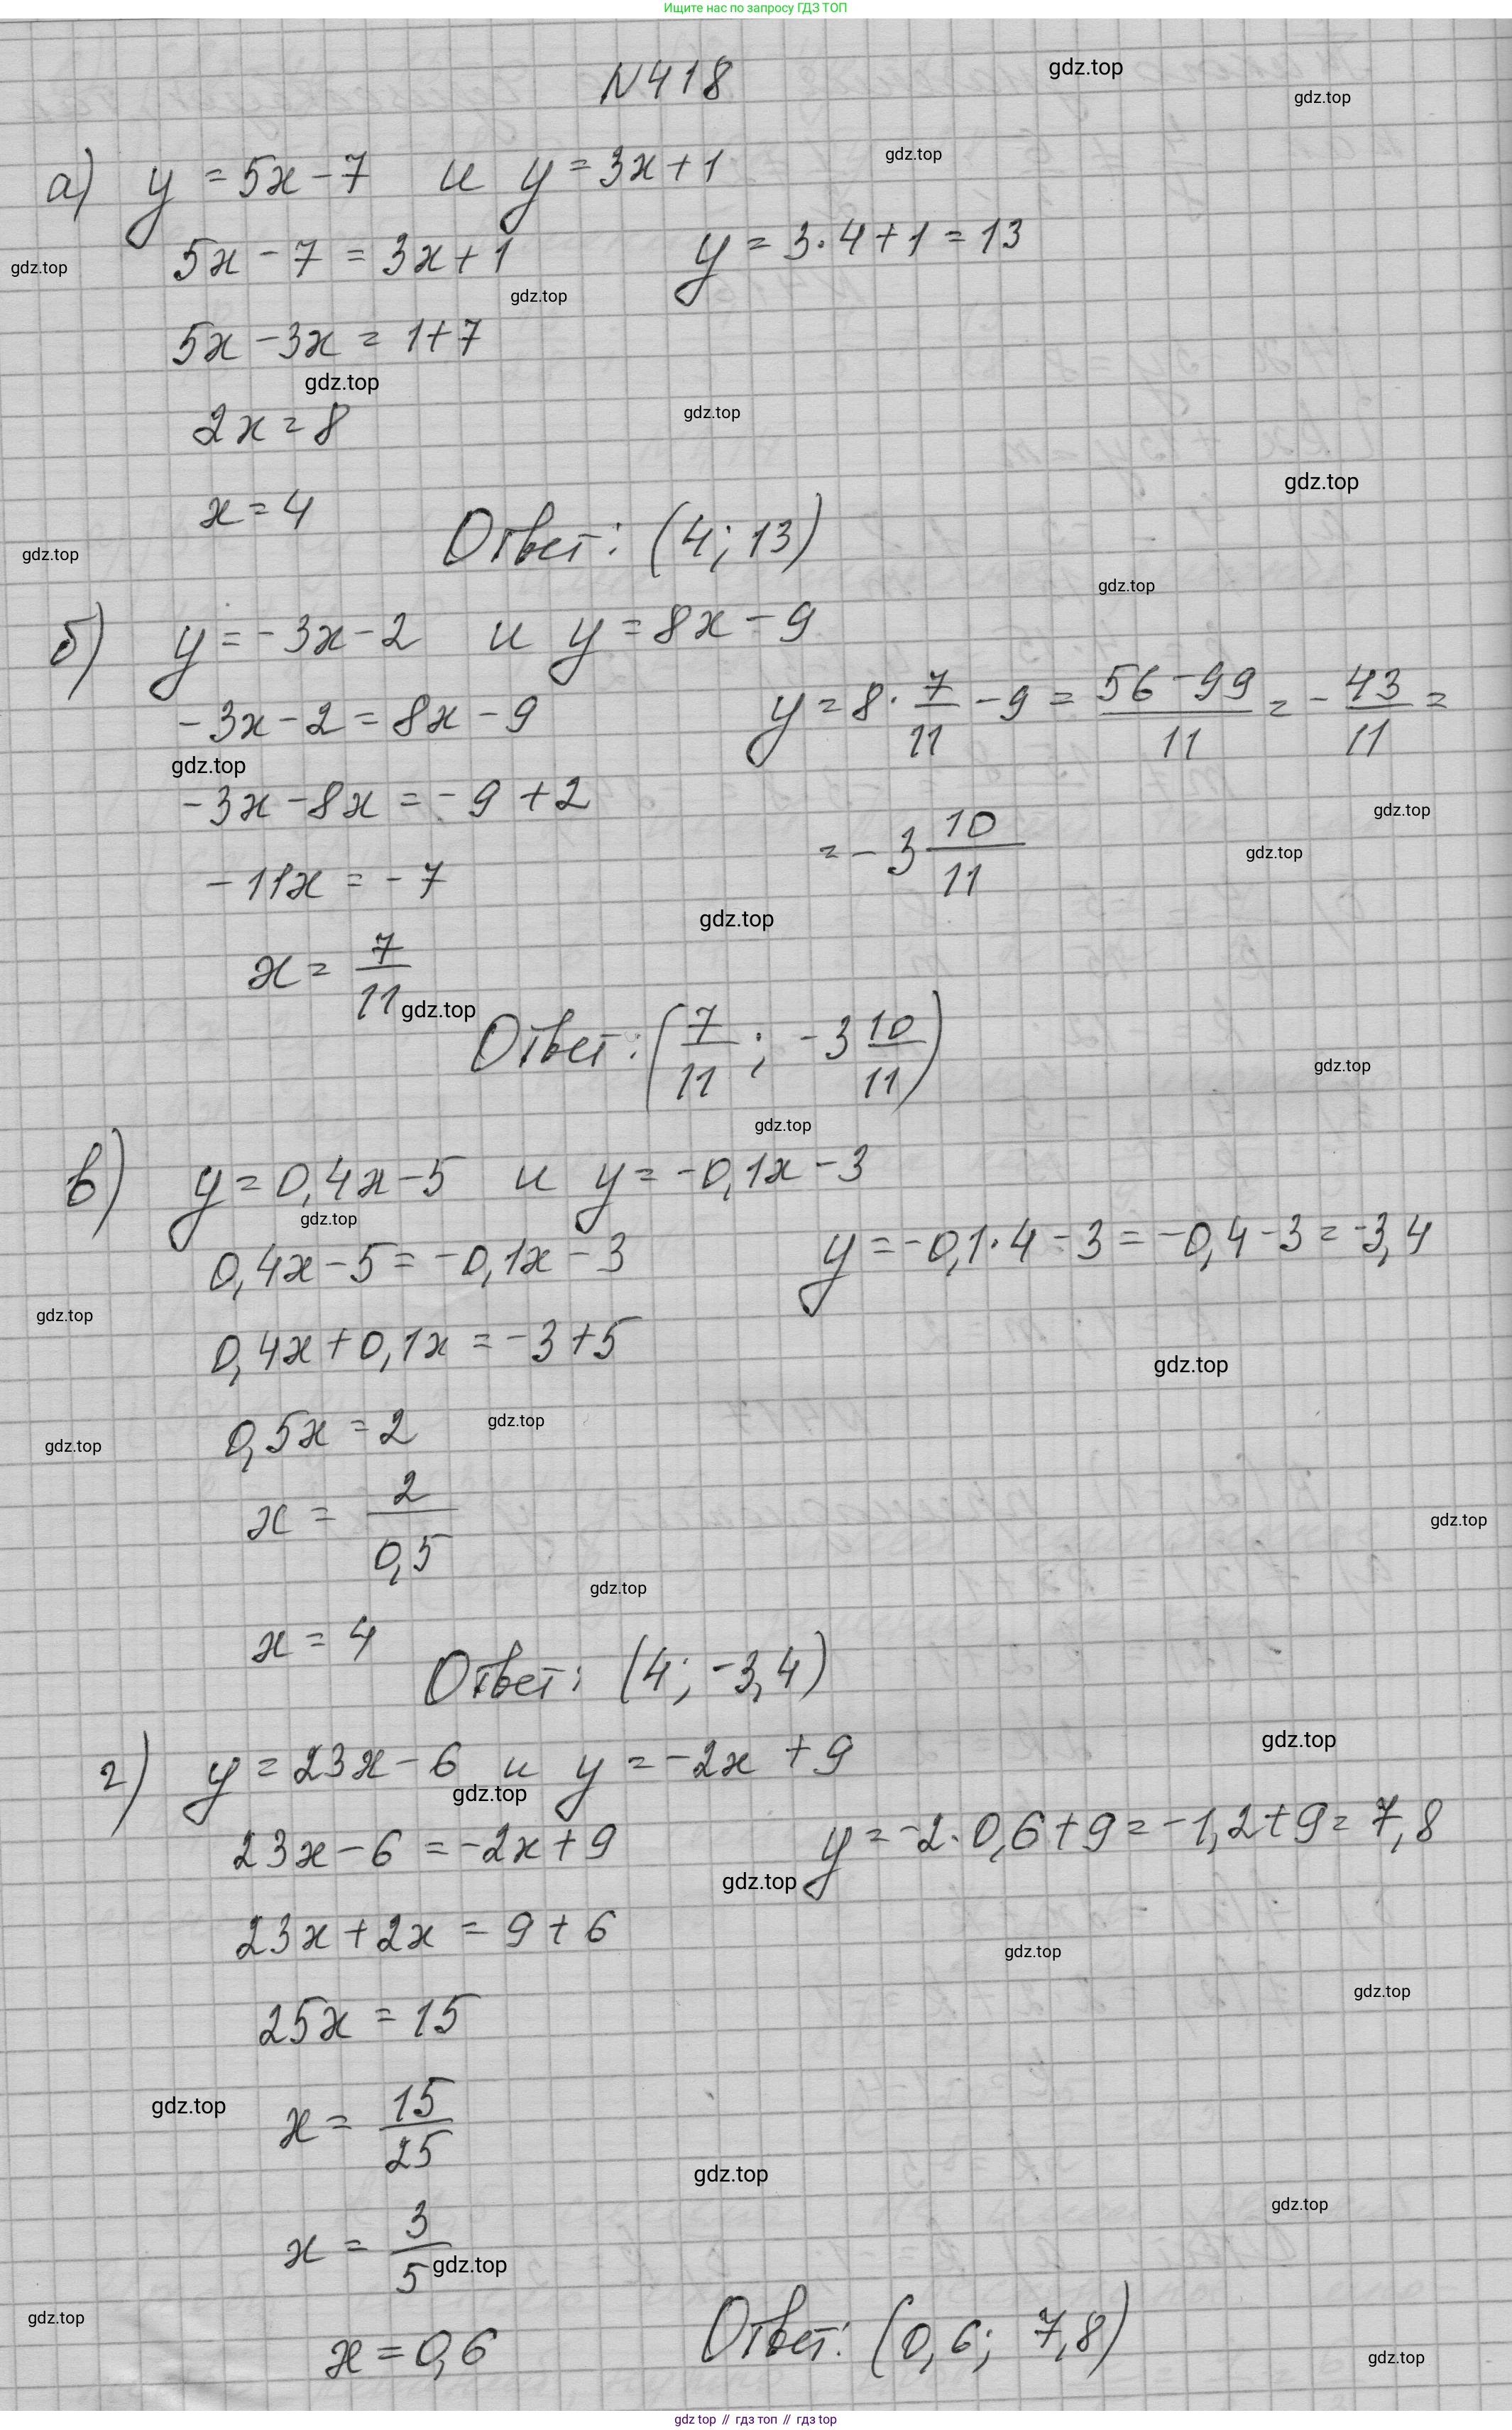 Ищите нас по запросу ГДЗ ТОП
N418
gdz.top
gdz.top
а) y = 5x - 7 и y = 3x + 1
gdz.top
5x - 7 = 3x + 1 y = 3·4 + 1 = 13
gdz.top
gdz.top
5x - 3x = 1 + 7
gdz.top
2x = 8
gdz.top
gdz.top
x = 4 Ответ: (4; 13)
gdz.top
gdz.top
б) y = -3x - 2 и y = 8x - 9
-3x - 2 = 8x - 9 y = 8 · 7/11 - 9 = (56 - 99)/11 = - 43/11 =
gdz.top
-3x - 8x = -9 + 2 = -3 10/11
gdz.top
gdz.top
-11x = -7
gdz.top
x = 7/11
gdz.top
Ответ: (7/11; -3 10/11)
gdz.top
gdz.top
в) y = 0,4x - 5 и y = -0,1x - 3
gdz.top
0,4x - 5 = -0,1x - 3 y = -0,1·4 - 3 = -0,4 - 3 = -3,4
gdz.top
0,4x + 0,1x = -3 + 5
gdz.top
0,5x = 2
gdz.top
gdz.top
x = 2/0,5
gdz.top
gdz.top
x = 4 Ответ: (4; -3,4)
gdz.top
г) y = 23x - 6 и y = -2x + 9
gdz.top
23x - 6 = -2x + 9 y = -2·0,6 + 9 = -1,2 + 9 = 7,8
gdz.top
23x + 2x = 9 + 6
gdz.top
gdz.top
25x = 15
gdz.top
x = 15/25
gdz.top
gdz.top
x = 3/5
gdz.top
gdz.top
x = 0,6 Ответ: (0,6; 7,8)
gdz.top
gdz top // гдз топ // гдз top